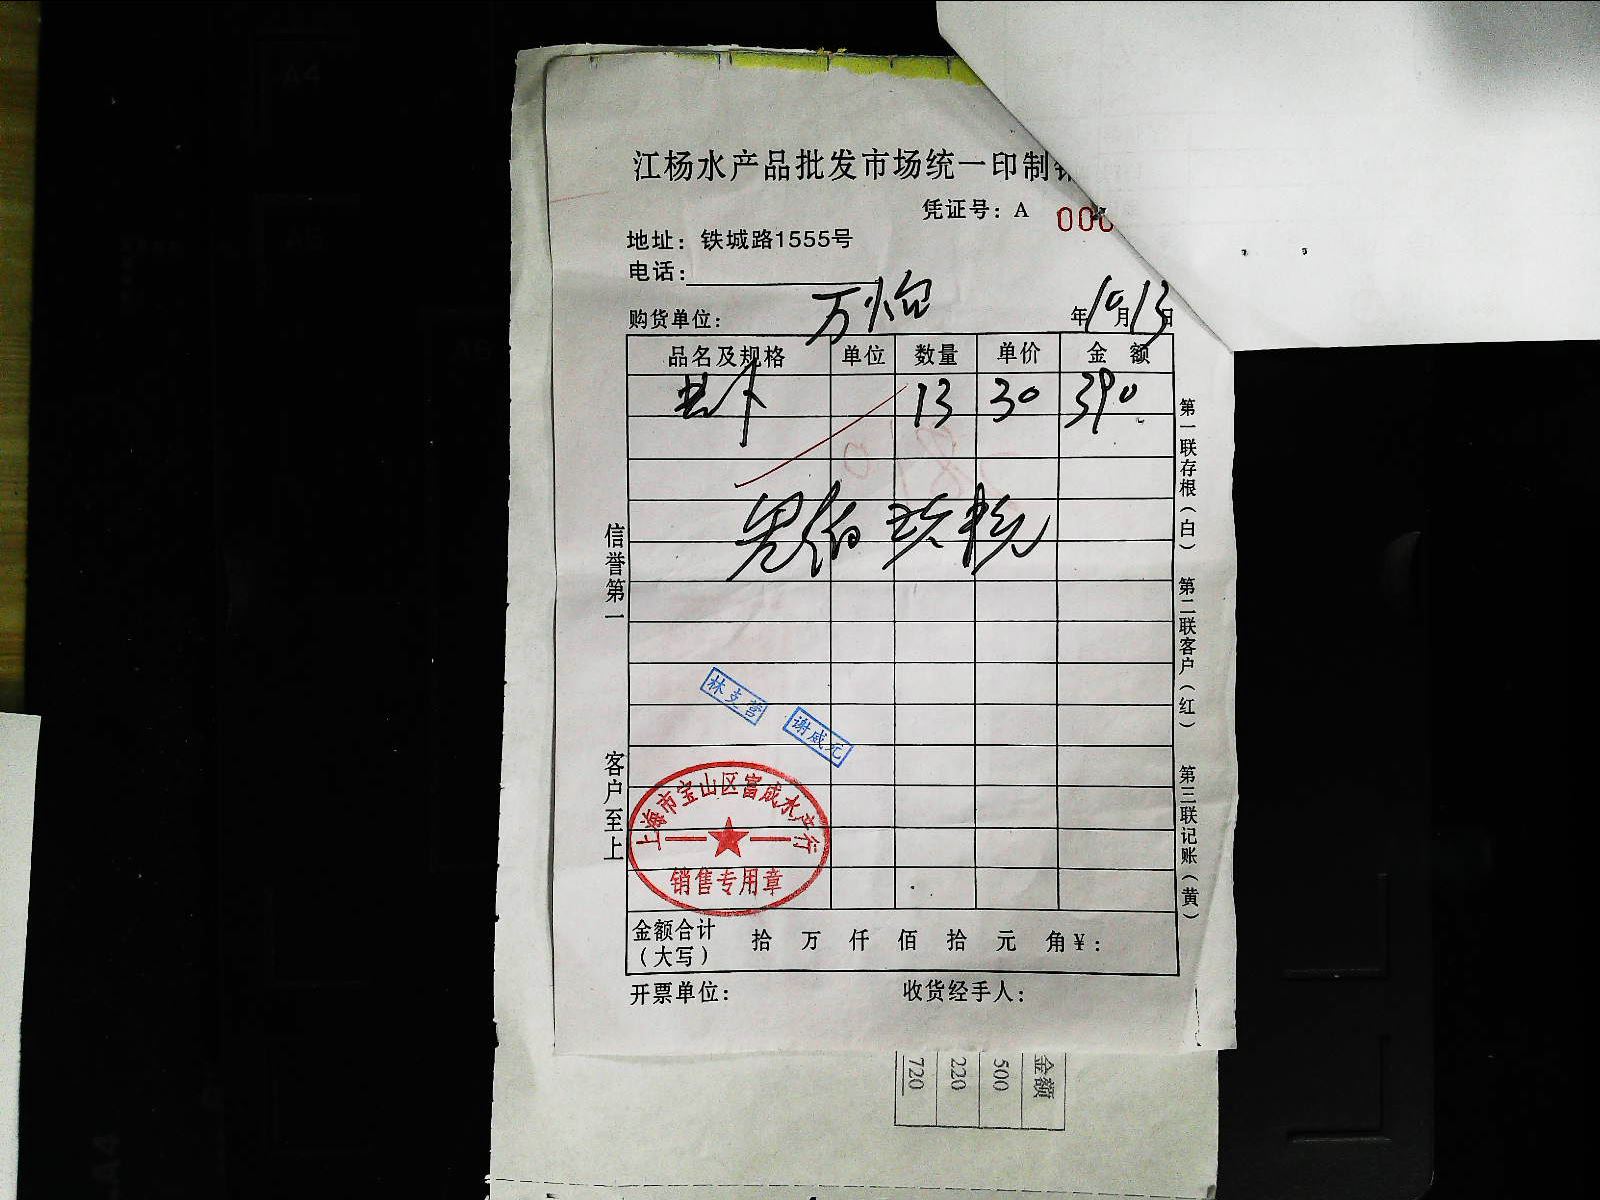 江杨水产品批发市场统一印制
凭证号：A 000
地址：铁城路1555号
电话：
购货单位： 年10月13日
品名及规格 单位 数量 单价 金额
13 30 390
信誉第一
客户至上
第一联存根（白）
第二联客户（红）
第三联记账（黄）
林支营
谢咸元
上海市宝山区富咸水产行
销售专用章
金额合计（大写） 拾 万 仟 佰 拾 元 角 ¥：
开票单位： 收货经手人：
金额
500
220
720
A4